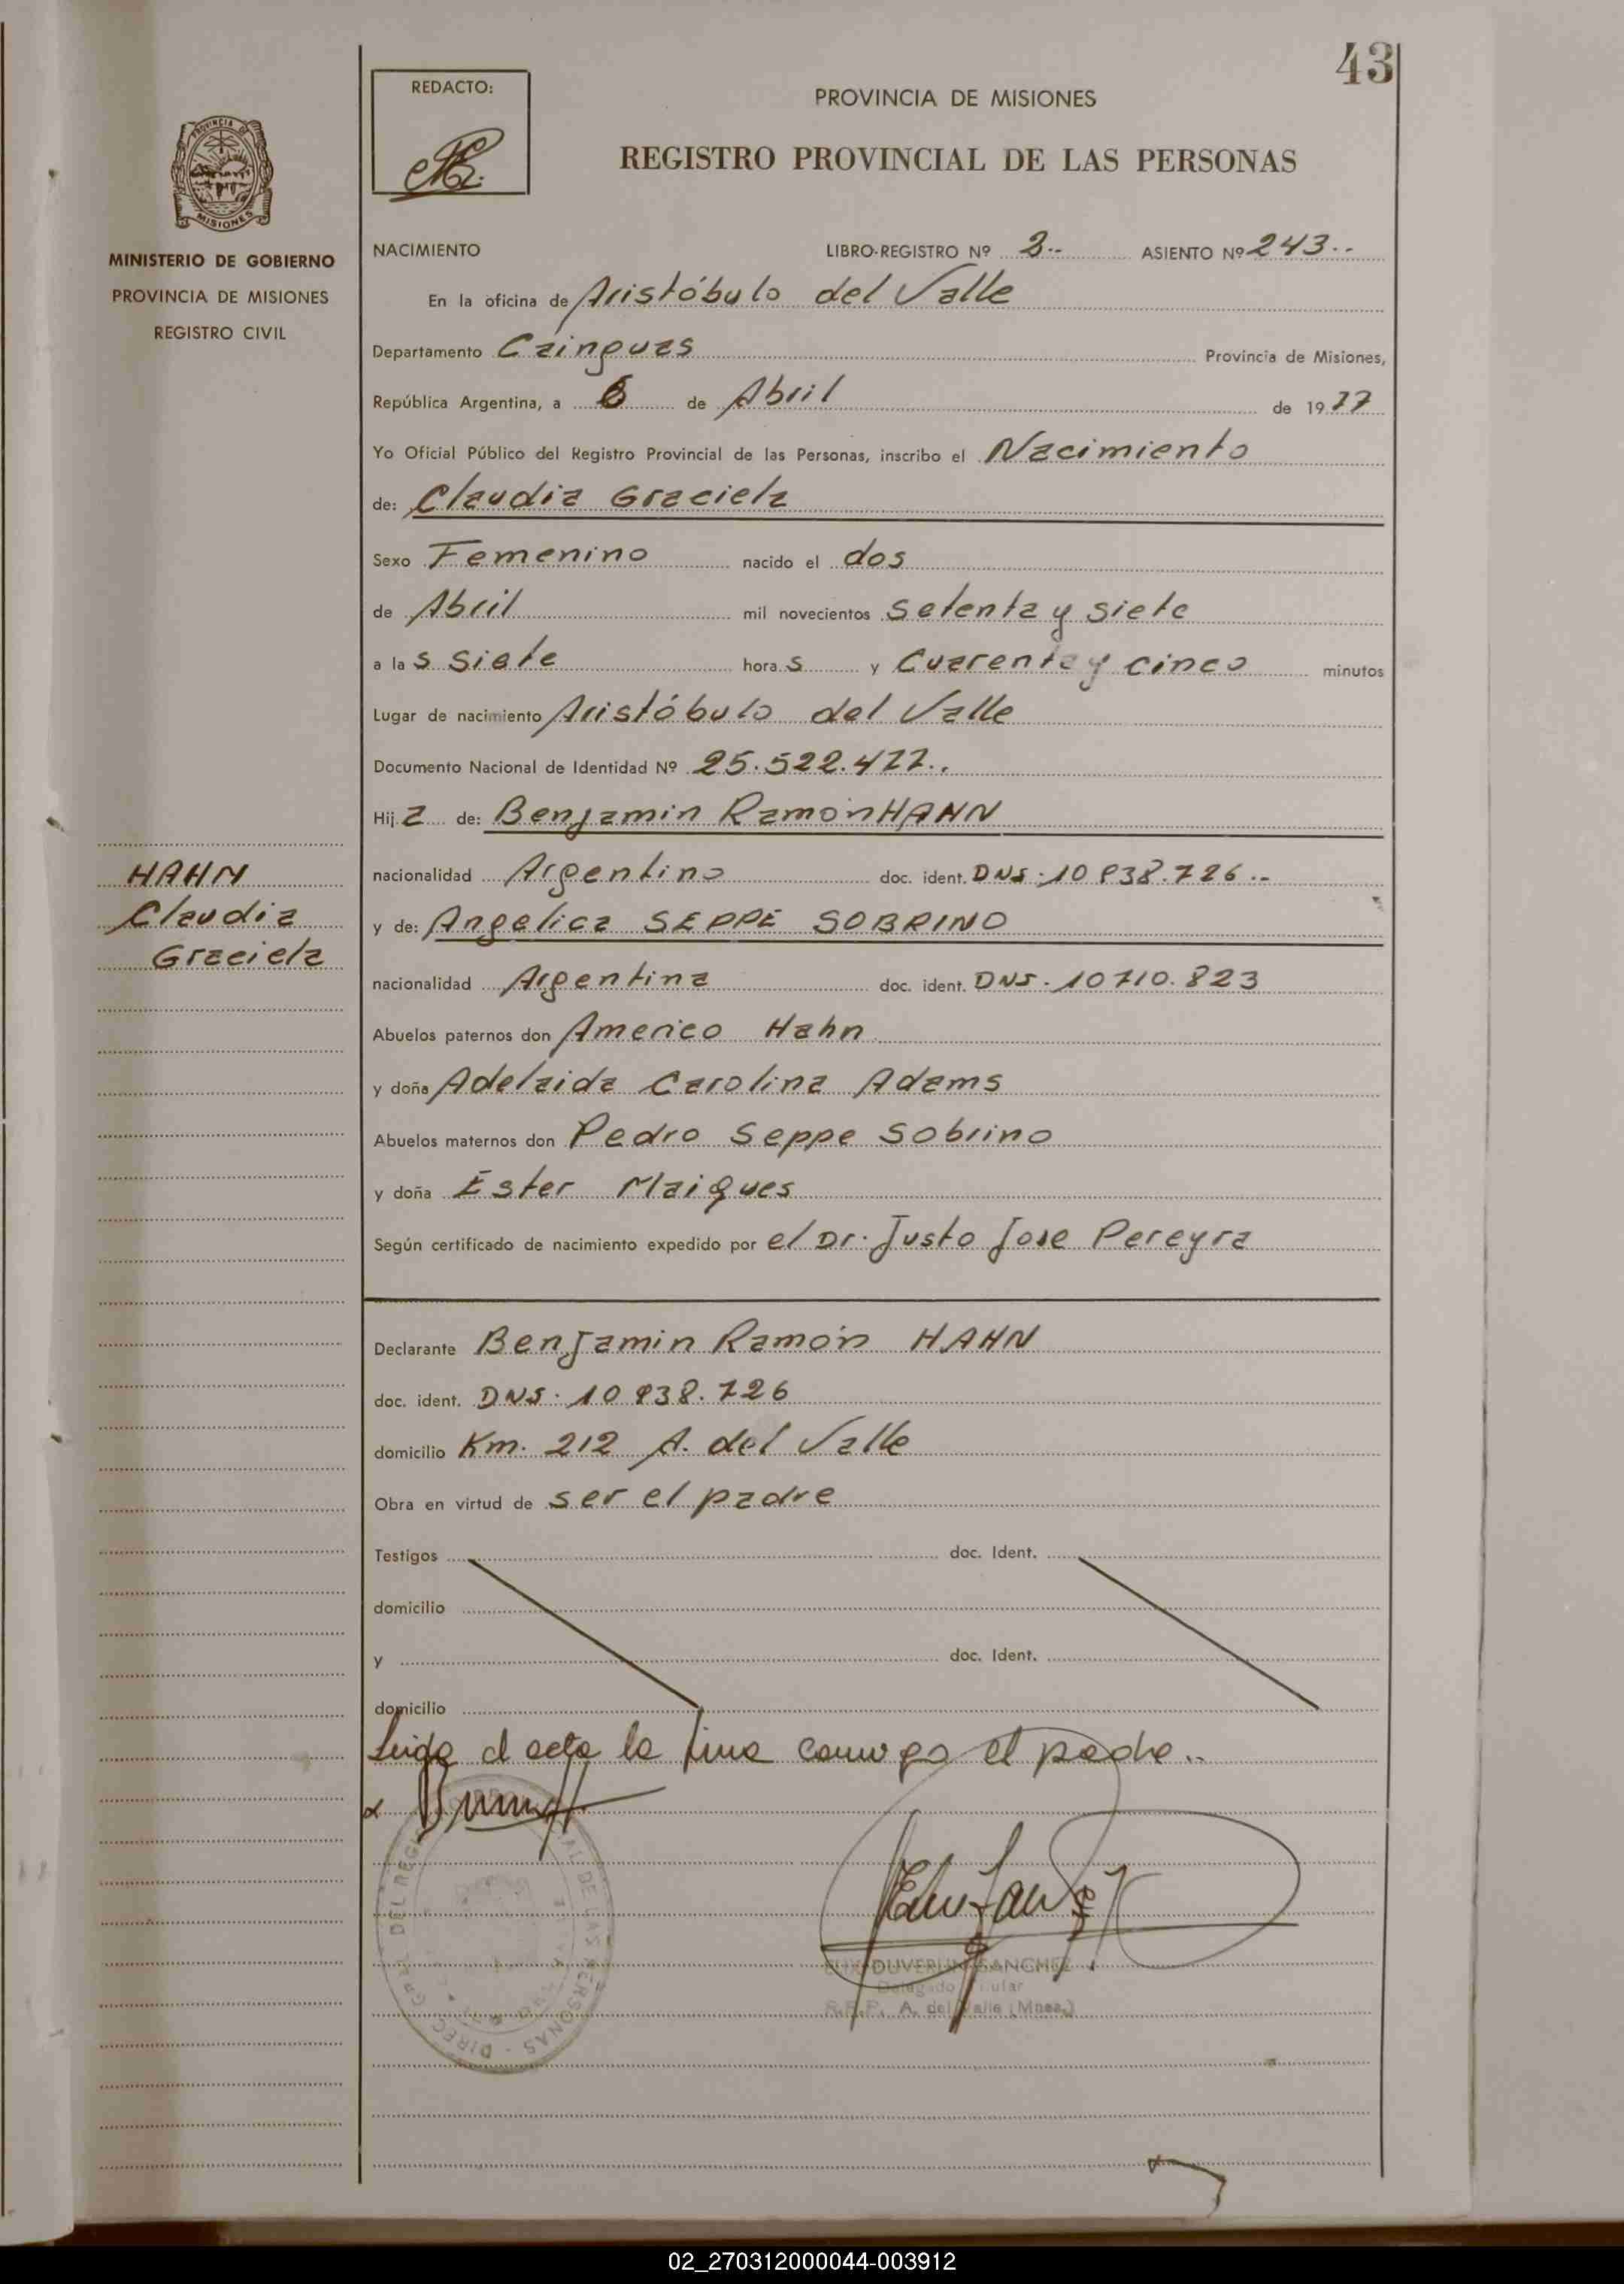 43
REDACTO:
PROVINCIA DE MISIONES
REGISTRO PROVINCIAL DE LAS PERSONAS
PROVINCIA DE
MISIONES
MINISTERIO DE GOBIERNO
PROVINCIA DE MISIONES
REGISTRO CIVIL
NACIMIENTO LIBRO-REGISTRO Nº 2.. ASIENTO Nº 243..
En la oficina de Aristóbulo del Valle
Departamento Cainguas Provincia de Misiones,
República Argentina, a 6 de Abril de 1977
Yo Oficial Público del Registro Provincial de las Personas, inscribo el Nacimiento
de: Claudia Graciela
Sexo Femenino nacido el dos
de Abril mil novecientos setenta y siete
a las siete horas y Cuarenta y cinco minutos
Lugar de nacimiento Aristóbulo del Valle
Documento Nacional de Identidad Nº 25.522.477..
Hija de: Benjamin Ramón HAHN
nacionalidad Argentino doc. ident. DNI: 10.838.726.-
y de: Angelica SEPPE SOBRINO
nacionalidad Argentina doc. ident. DNI. 10710.823
Abuelos paternos don Americo Hahn
y doña Adelaida Carolina Adams
Abuelos maternos don Pedro Seppe Sobrino
y doña Ester Maiques
Según certificado de nacimiento expedido por el Dr. Justo Jose Pereyra
HAHN
Claudia
Graciela
Declarante Benjamin Ramón HAHN
doc. ident. DNI: 10 838.726
domicilio Km. 212 A. del Valle
Obra en virtud de ser el padre
Testigos doc. Ident.
domicilio
y doc. Ident.
domicilio
Leida el acta la firma conmigo el padre..
DUVERLIN SANCHEZ
Delegado Titular
R.P.P. A. del Valle (Mnes.)
02_270312000044-003912